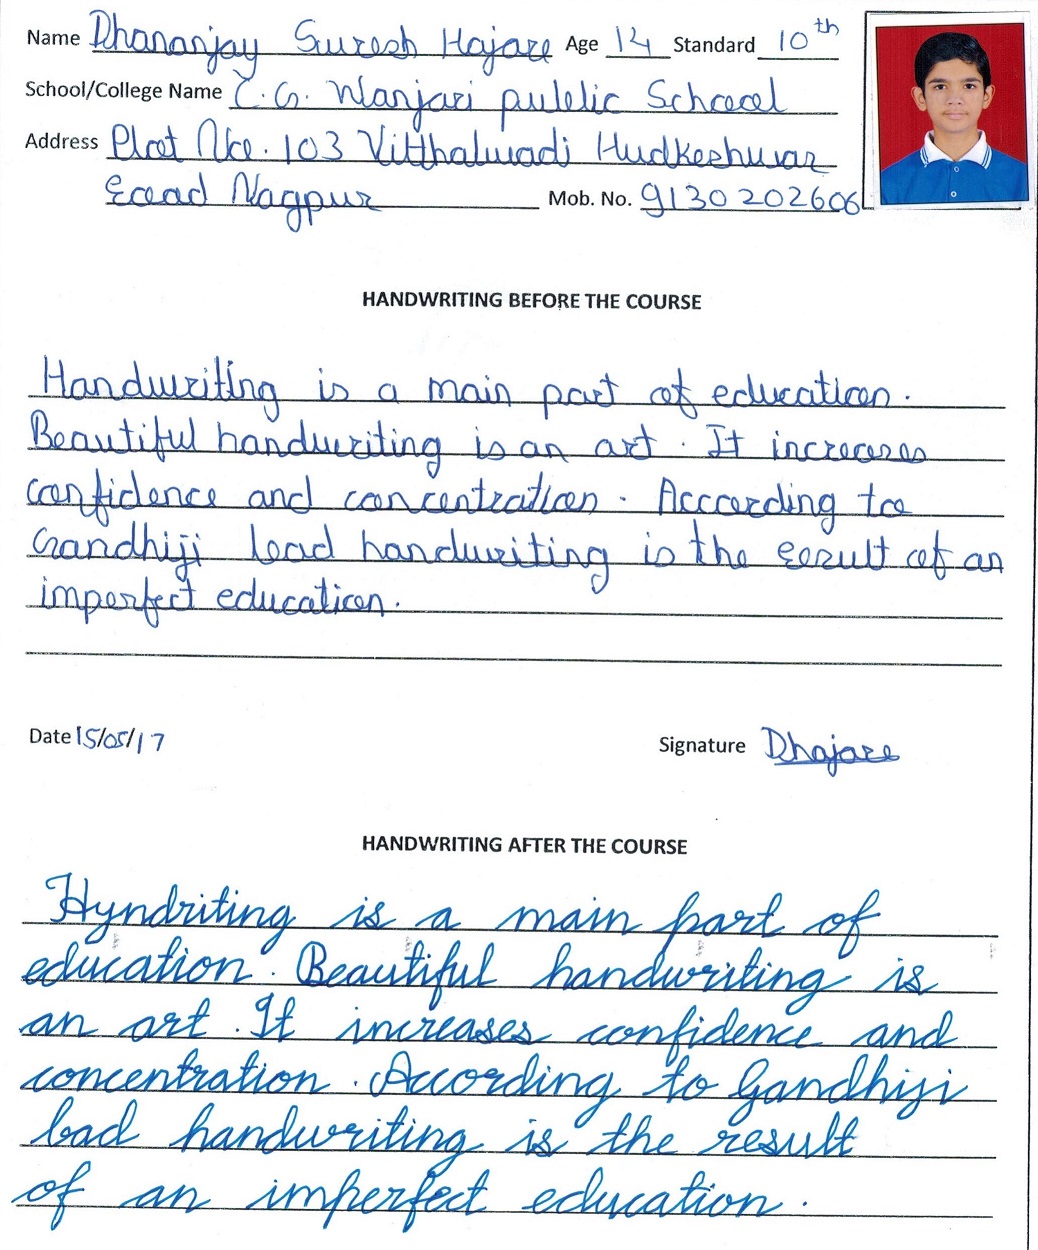 Name Dhananjay Suresh Hajare Age 14 Standard 10th
School/College Name C.G. Wanjari public School
Address Plot No. 103 Vitthalwadi Hudkeshwar
Road Nagpur Mob. No. 9130202606
HANDWRITING BEFORE THE COURSE
Handwriting is a main part of education.
Beautiful handwriting is an art. It increases
confidence and concentration. According to
Gandhiji bad handwriting is the result of an
imperfect education.
Date 15/05/17 Signature Dhajare
HANDWRITING AFTER THE COURSE
Hyndriting is a main part of
education. Beautiful handwriting is
an art. It increases confidence and
concentration. According to Gandhiji
bad handwriting is the result
of an imperfect education.